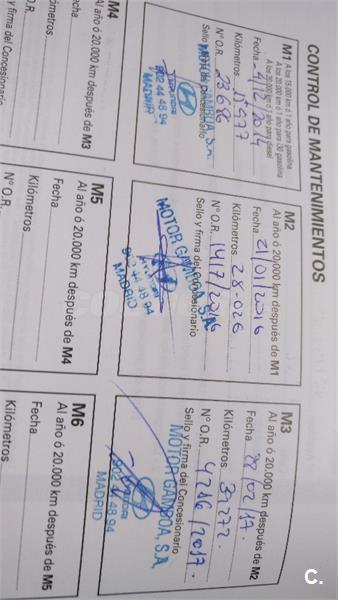 CONTROL DE MANTENIMIENTOS
M1
A los 15.000 km ó 1 año para gasolina
A los 20.000 km ó 1 año para i30 gasolina
A los 20.000 km ó 1 año para diesel
Fecha 4/12/2014
Kilómetros 17.577
N° O.R. 23686
Sello y firma del Concesionario
MOTOR GAMBOA, S.A.
902 44 48 94
MADRID
M2
Al año ó 20.000 km después de M1
Fecha 21/01/2016
Kilómetros 28-026
N° O.R. 1417/2016
Sello y firma del Concesionario
MOTOR GAMBOA, S.A.
902 44 48 94
MADRID
M3
Al año ó 20.000 km después de M2
Fecha 22/02/17.
Kilómetros
N° O.R. 4216/2017.
Sello y firma del Concesionario
MOTOR GAMBOA, S.A.
902 44 48 94
MADRID
M4
Al año ó 20.000 km después de M3
Fecha
Kilómetros
O.R.
y firma del Concesionario
M5
Al año ó 20.000 km después de M4
Fecha
Kilómetros
N° O.R.
M6
Al año ó 20.000 km después de M5
Fecha
Kilómetros
C.